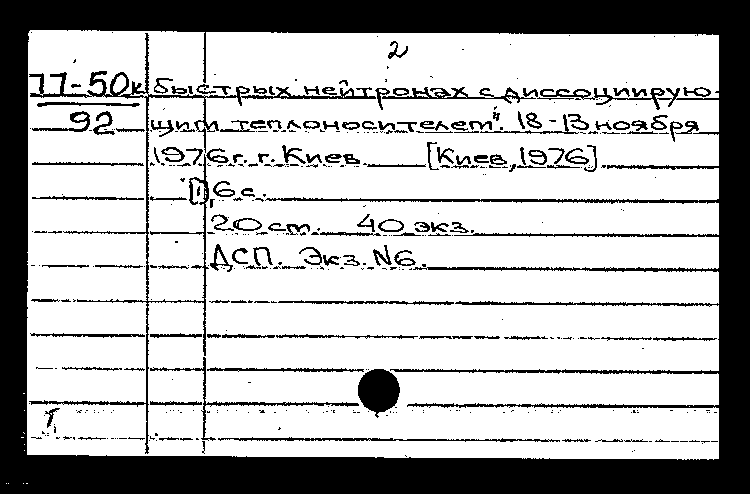 2
77-50к быстрых нейтронах с диссоциирую-
92 щим теплоносителем". 18-13 ноября
1976г. г. Киев [Киев, 1976]
[1], 6 с.
20 ст. 40 экз.
ДСП. Экз. №6.
I